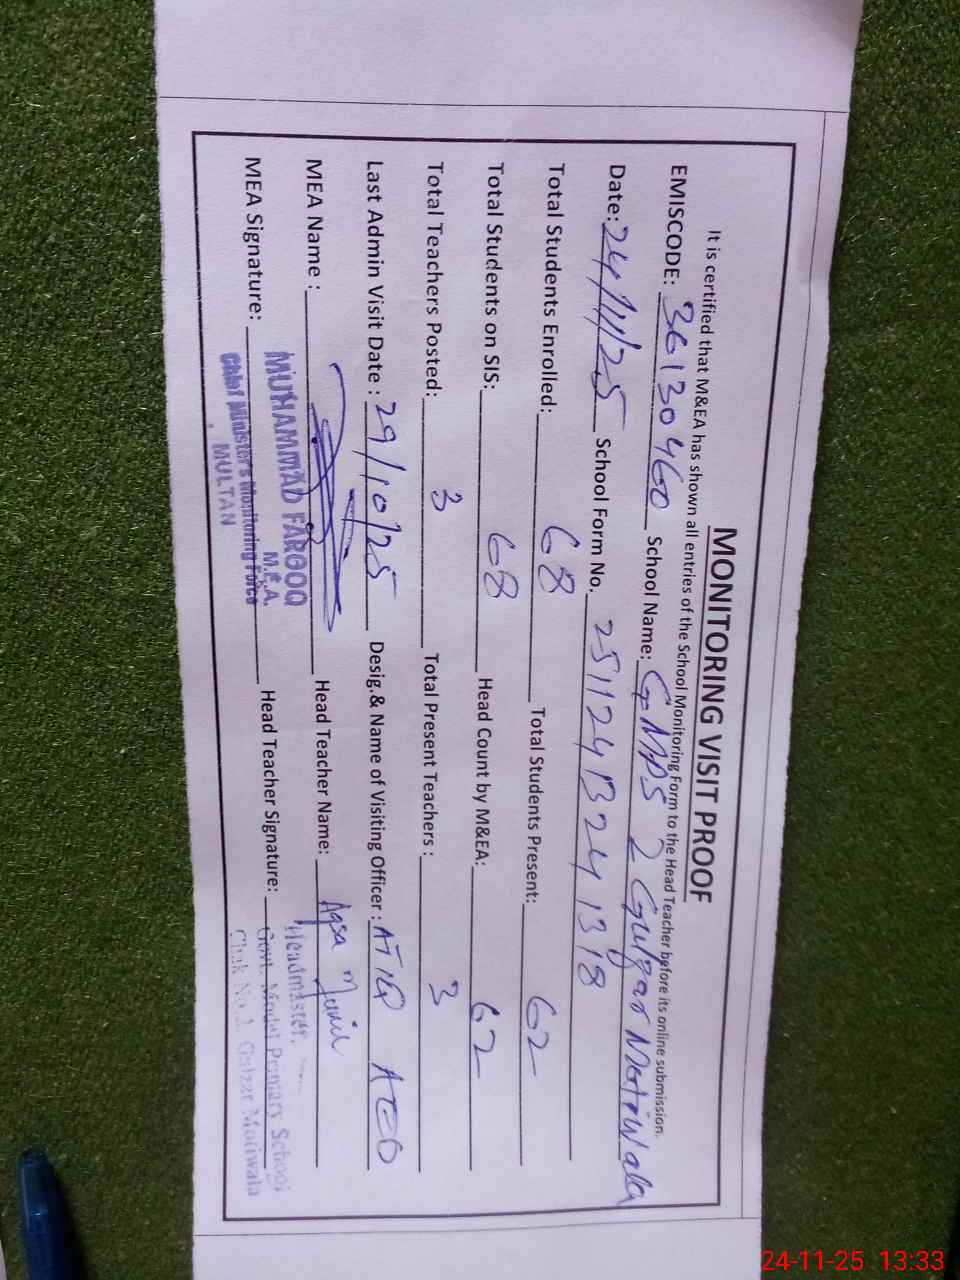 MONITORING VISIT PROOF
It is certified that M&EA has shown all entries of the School Monitoring Form to the Head Teacher before its online submission.
EMISCODE: 36130460 School Name: GMPS 2 Gulzar Motiwala
Date: 24/11/25 School Form No. 25112413241318
Total Students Enrolled: 68 Total Students Present: 62
Total Students on SIS: 68 Head Count by M&EA: 62
Total Teachers Posted: 3 Total Present Teachers : 3
Last Admin Visit Date : 29/10/25 Desig.& Name of Visiting Officer : ATIQ AEO
MEA Name : Head Teacher Name: Aqsa
MEA Signature: Head Teacher Signature:
MUHAMMAD FAROOQ
M.E.A.
Chief Minister's Monitoring Force
MULTAN
Headmaster,
Govt. Model Primary School
Chak No.2 Gulzar Motiwala
24-11-25 13:33